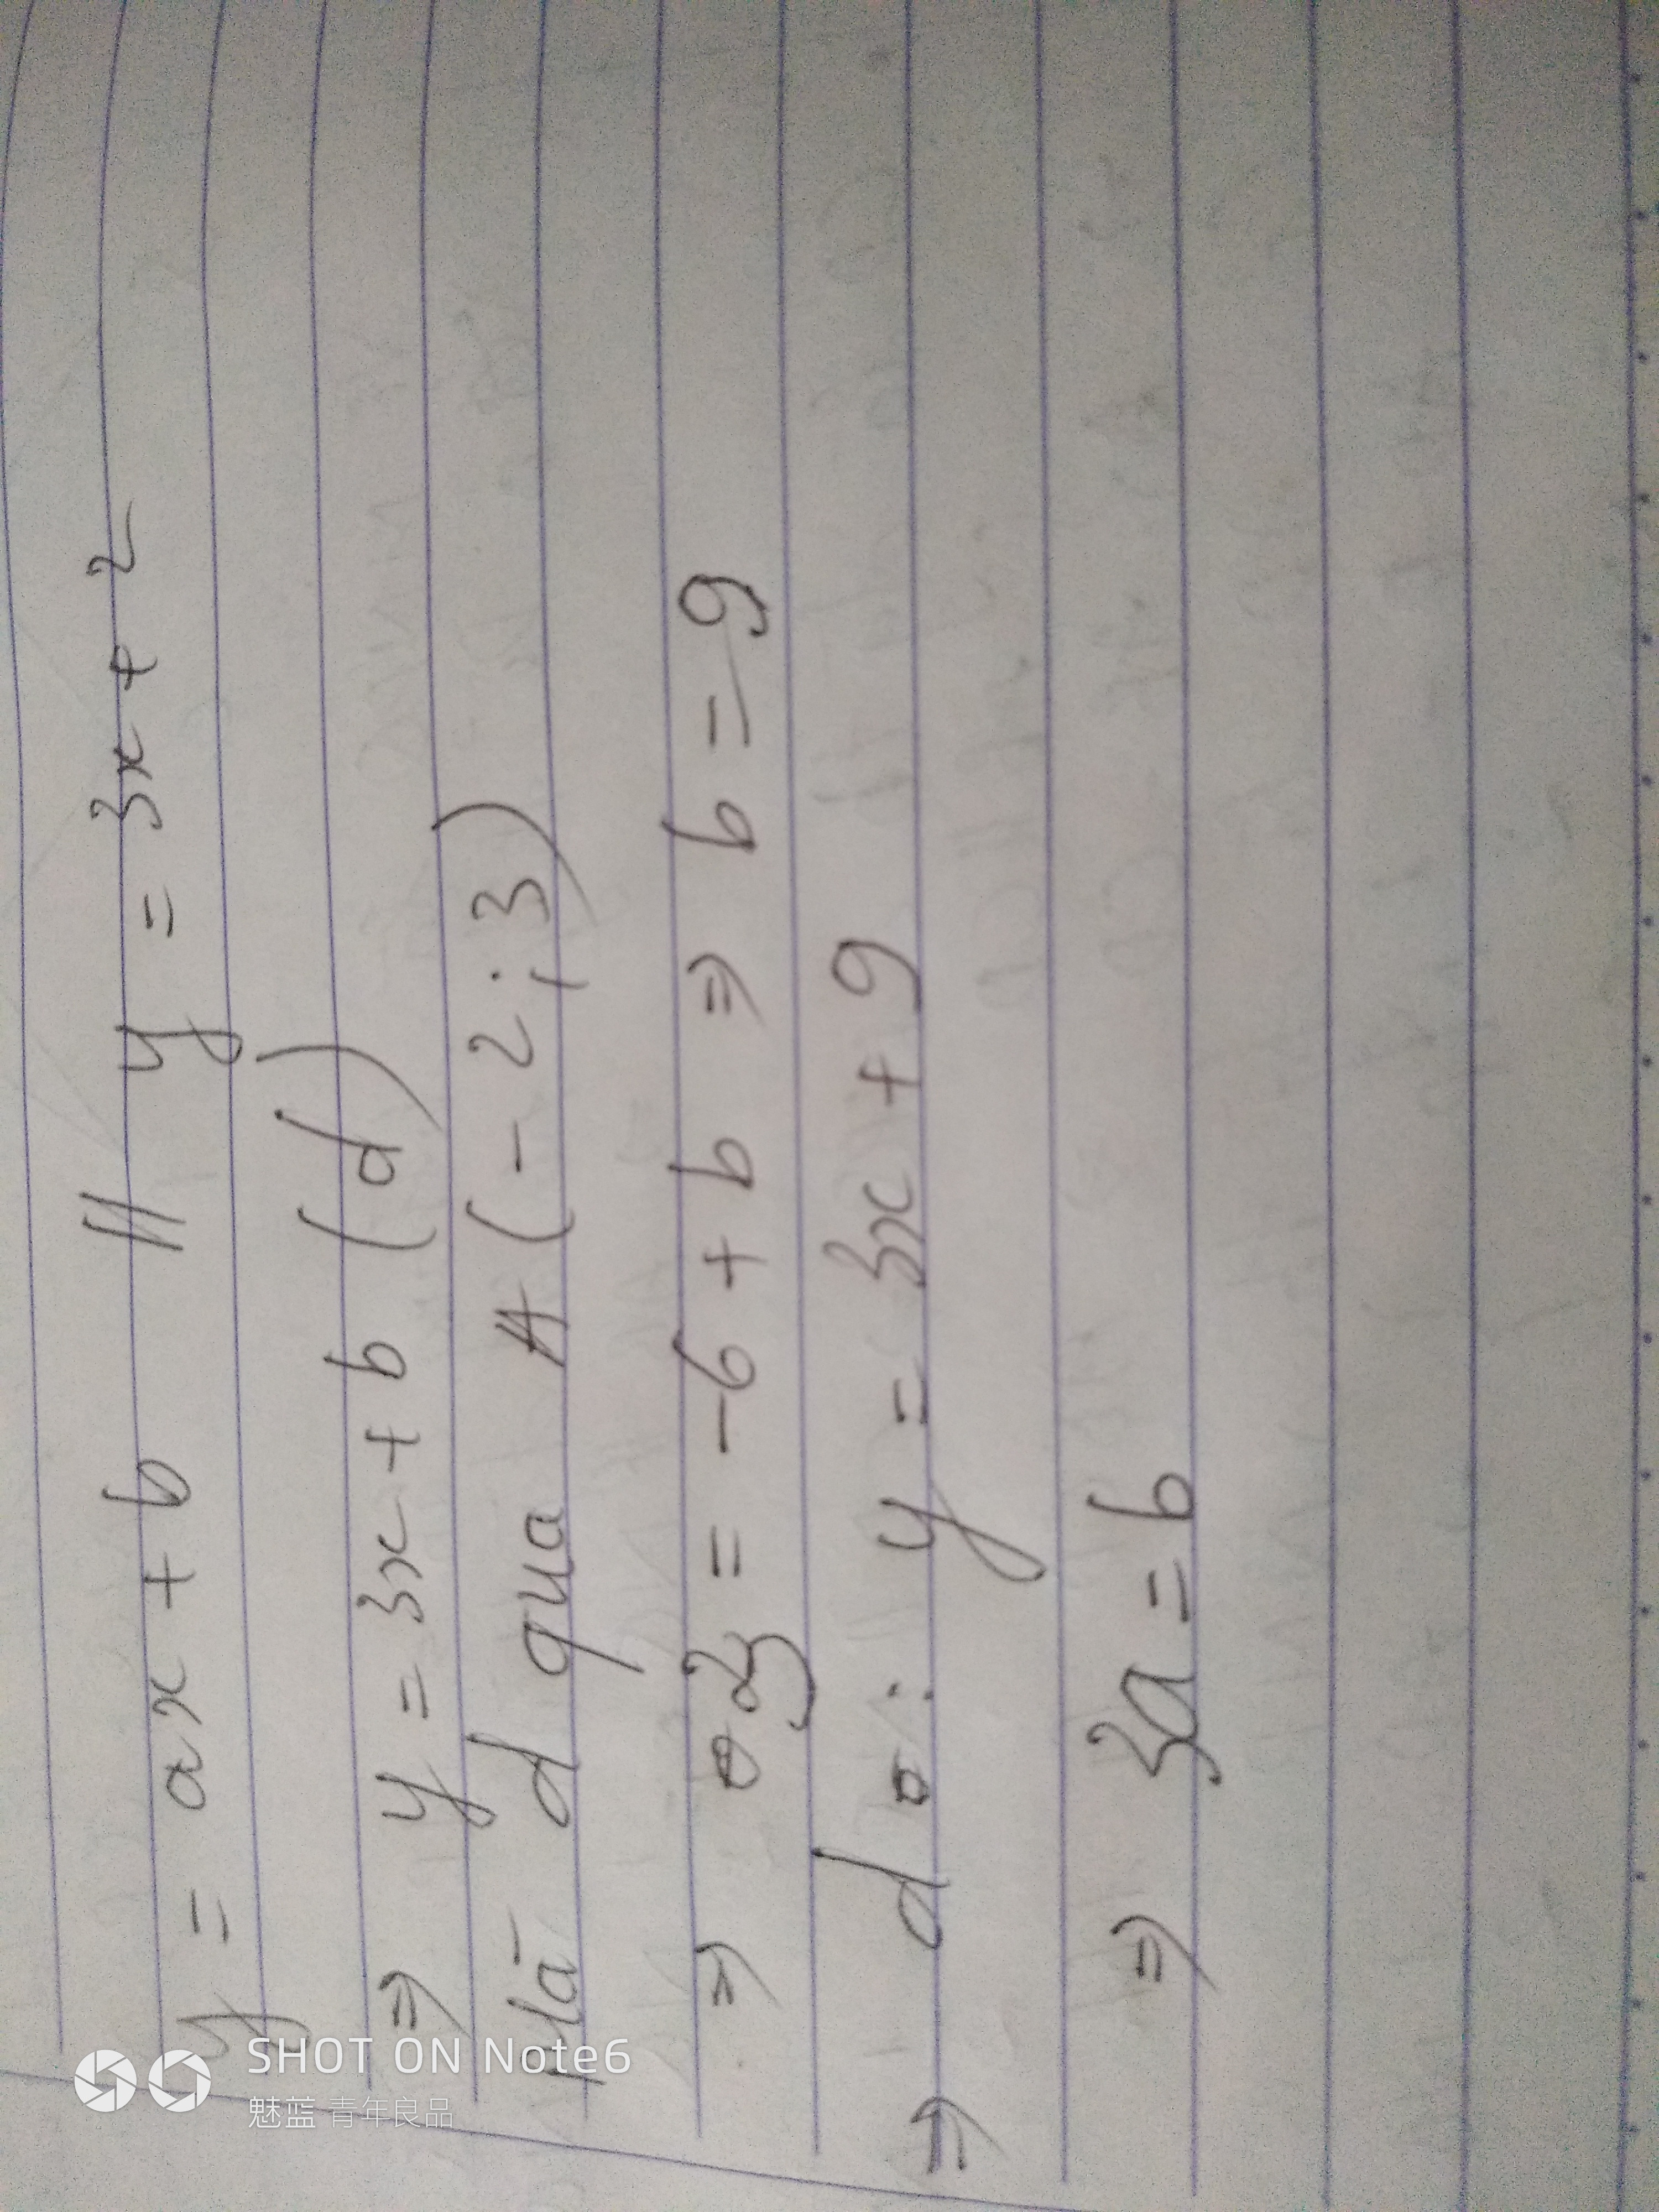 y = ax + b // y = 3x + 2
⇒ y = 3x + b (d)
Mà d qua A (-2; 3)
⇒ 3 = -6 + b ⇒ b = 9
⇒ d : y = 3x + 9
⇒ 3a = b
SHOT ON Note6
魅蓝 青年良品